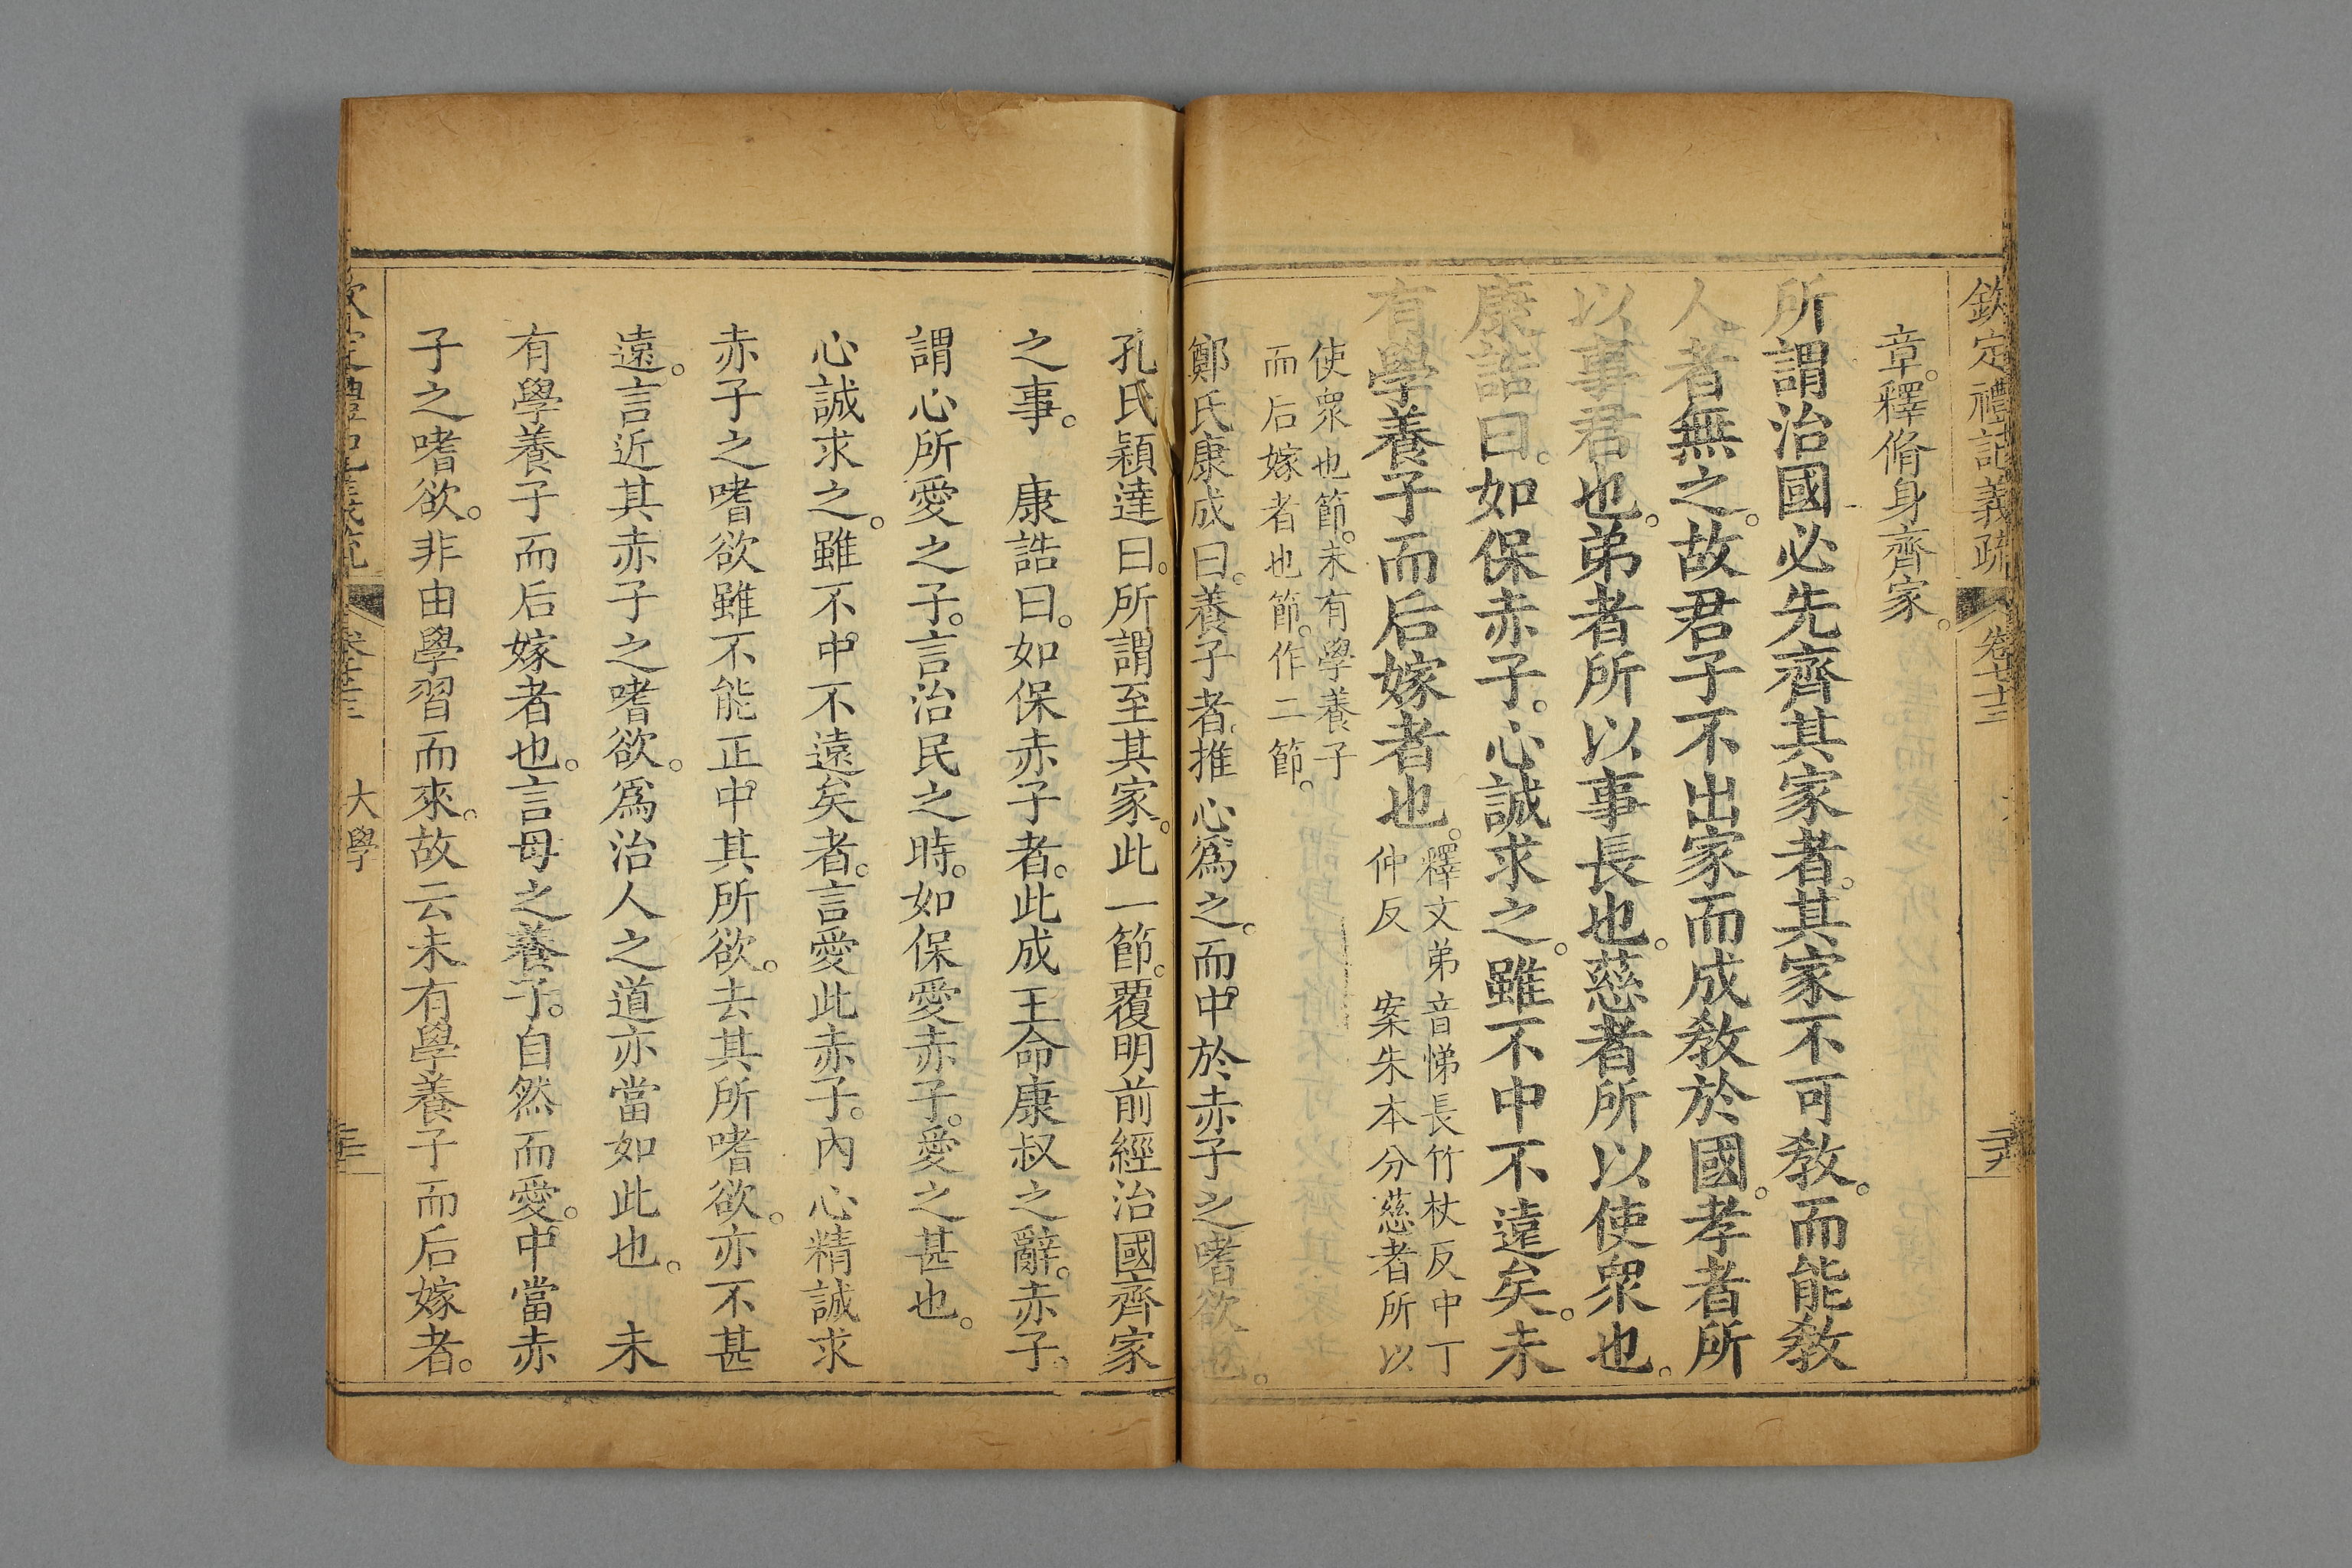 欽定禮記義疏 卷七十三
章。釋脩身齊家。
所謂治國必先齊其家者。其家不可敎。而能敎
人者無之。故君子不出家而成敎於國。孝者所
以事君也。弟者所以事長也。慈者所以使眾也。
康誥曰。如保赤子。心誠求之。雖不中不遠矣。未
有學養子而后嫁者也。
釋文弟音悌長竹杖反中丁
仲反 案朱本分慈者所以
使眾也節。未有學養子
而后嫁者也節。作二節。
鄭氏康成曰。養子者。推心爲之。而中於赤子之嗜欲也。
孔氏穎達曰。所謂至其家。此一節。覆明前經治國齊家
之事。 康誥曰。如保赤子者。此成王命康叔之辭。赤子。
謂心所愛之子。言治民之時。如保愛赤子。愛之甚也。
心誠求之。雖不中不遠矣者。言愛此赤子。內心精誠求
赤子之嗜欲雖不能正中其所欲。去其所嗜欲。亦不甚
遠。言近其赤子之嗜欲。爲治人之道亦當如此也。 未
有學養子而后嫁者也。言母之養子。自然而愛。中當赤
子之嗜欲。非由學習而來。故云未有學養子而后嫁者。
大學